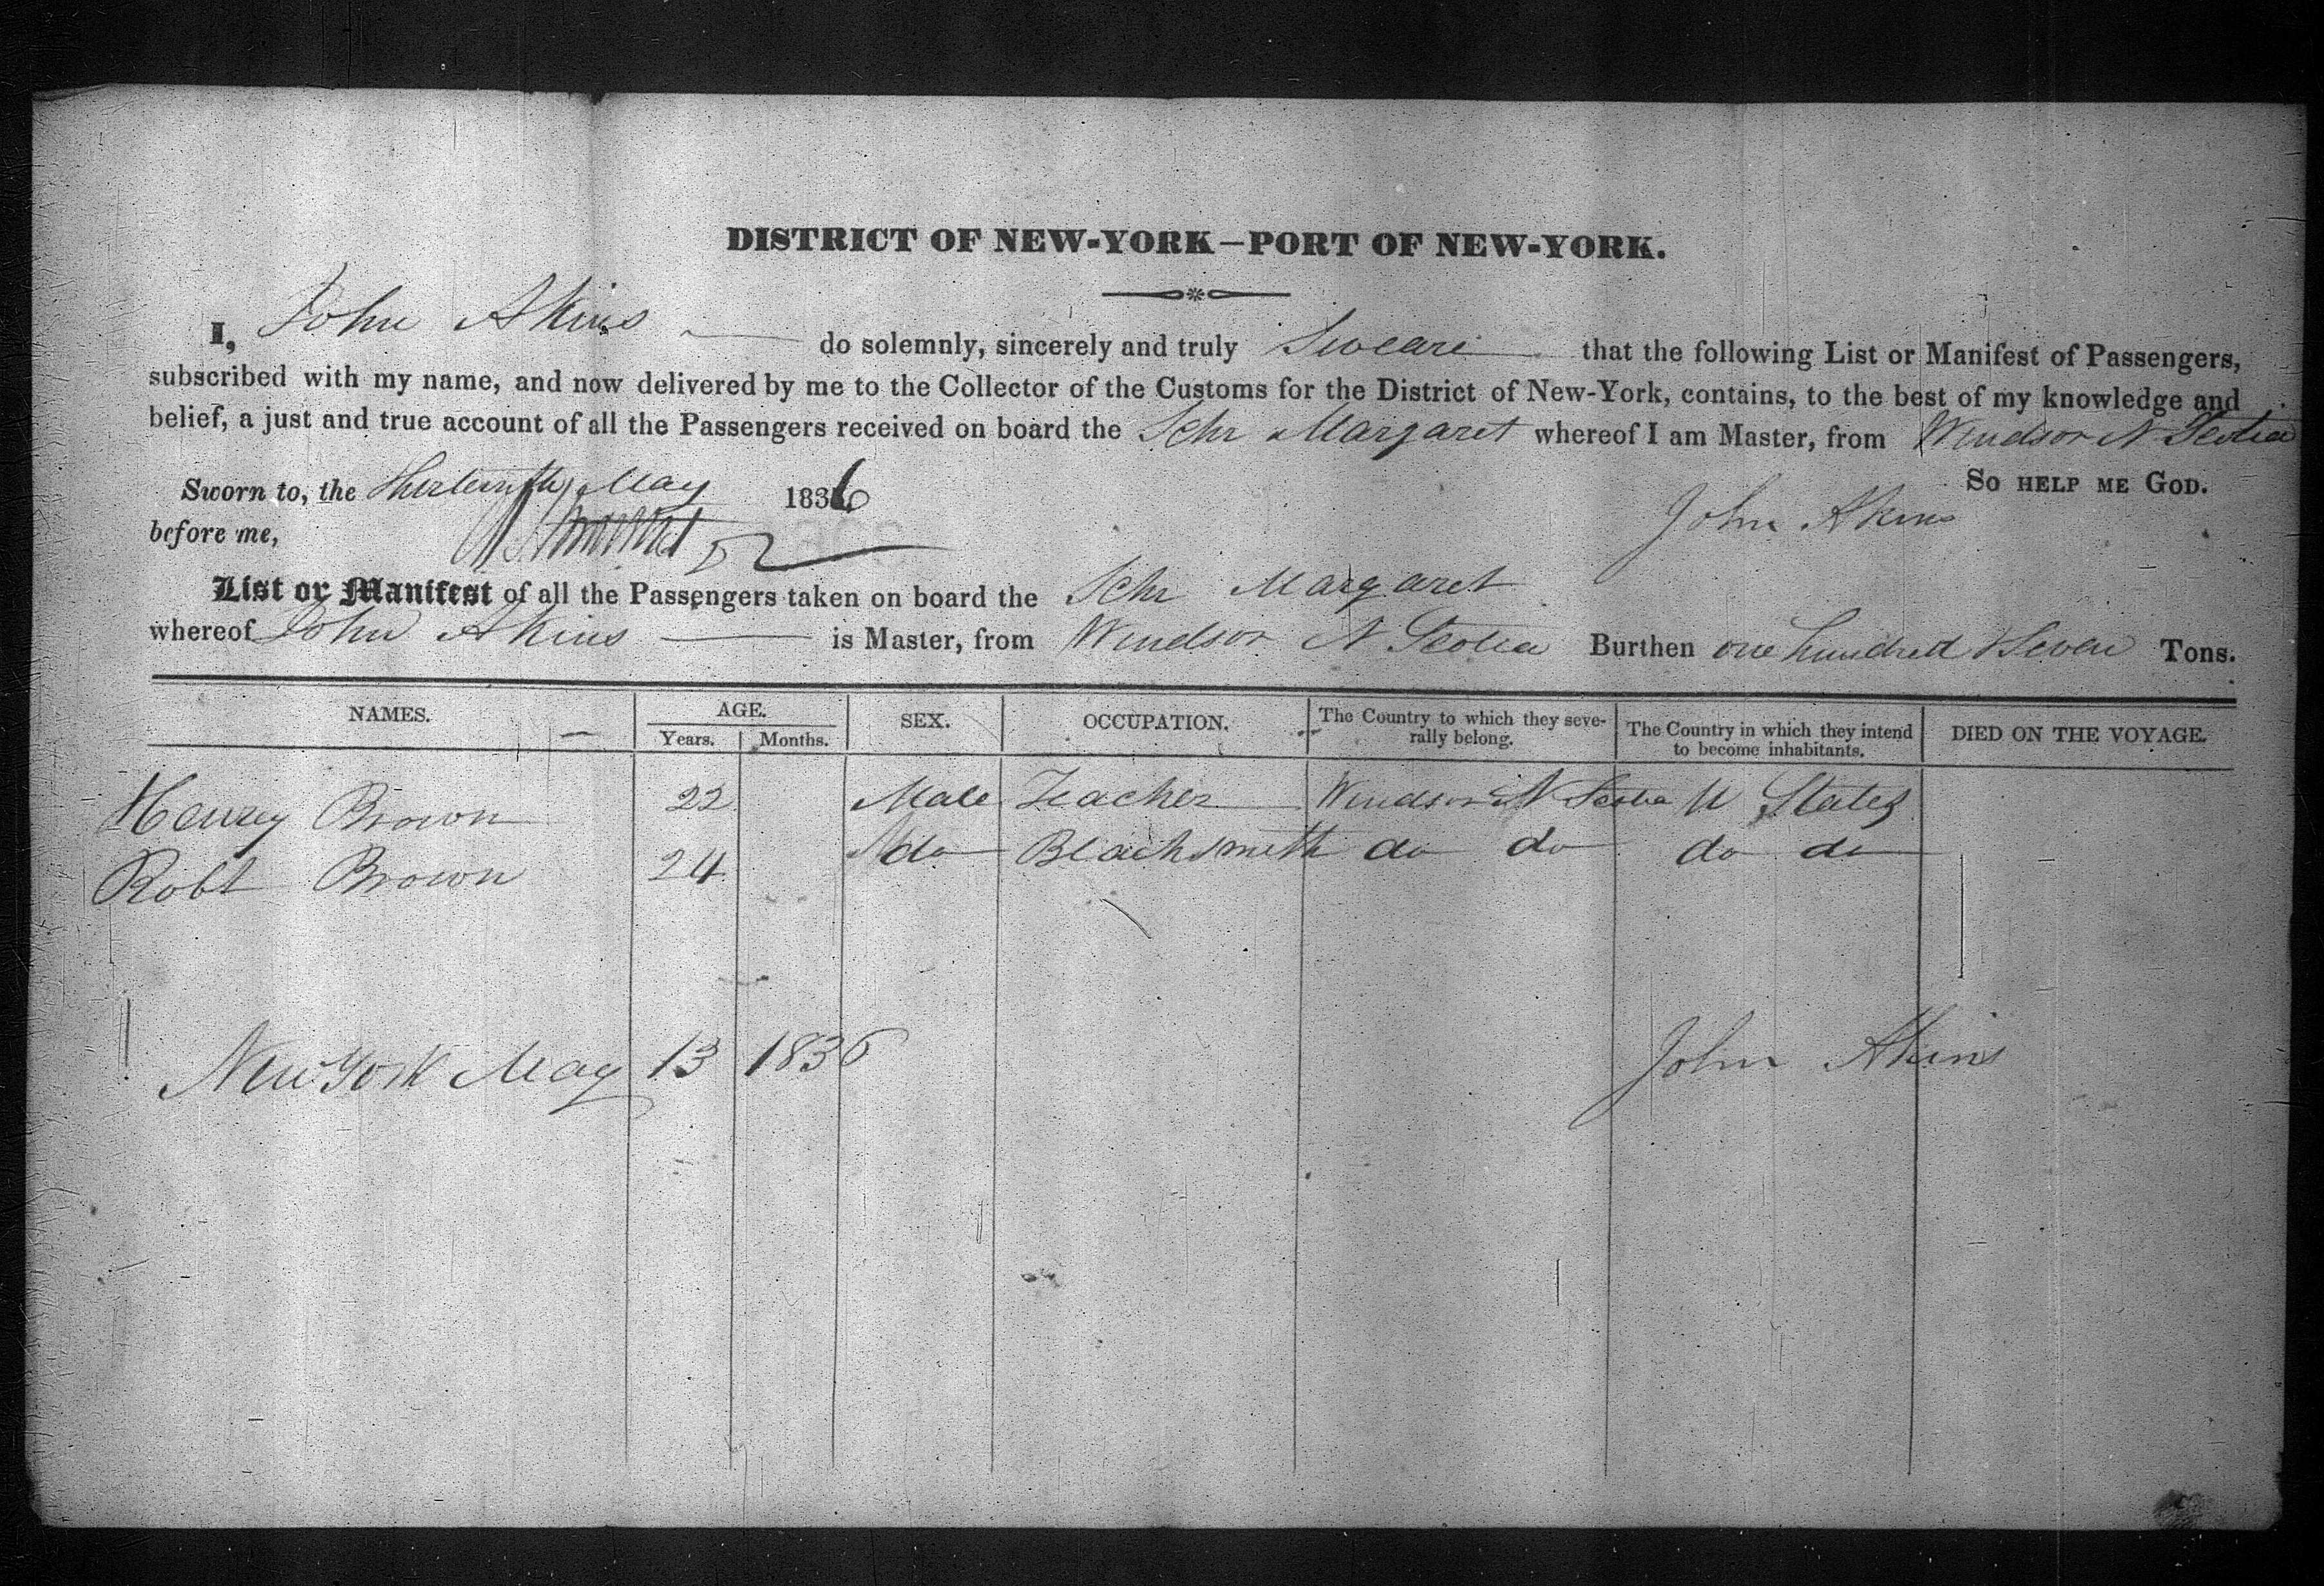 DISTRICT OF NEW-YORK—PORT OF NEW-YORK.
I, John Akins do solemnly, sincerely and truly Sweare that the following List or Manifest of Passengers,
subscribed with my name, and now delivered by me to the Collector of the Customs for the District of New-York, contains, to the best of my knowledge and
belief, a just and true account of all the Passengers received on board the Schr Margaret whereof I am Master, from Windsor N Scotia
So HELP ME GOD.
Sworn to, the Thirteenth May 1836
John Akins
before me,
List or Manifest of all the Passengers taken on board the Schr Margaret
whereof John Akins is Master, from Windsor N Scotia Burthen one hundred & Seven Tons.
NAMES. AGE. SEX. OCCUPATION. The Country to which they seve- The Country in which they intend DIED ON THE VOYAGE.
Years. Months. rally belong. to become inhabitants.
Henry Brown 22 Male Teacher Windsor N Scotia U States
Robt Brown 24 do Blacksmith do do do do
New York May 13 1836 John Akins